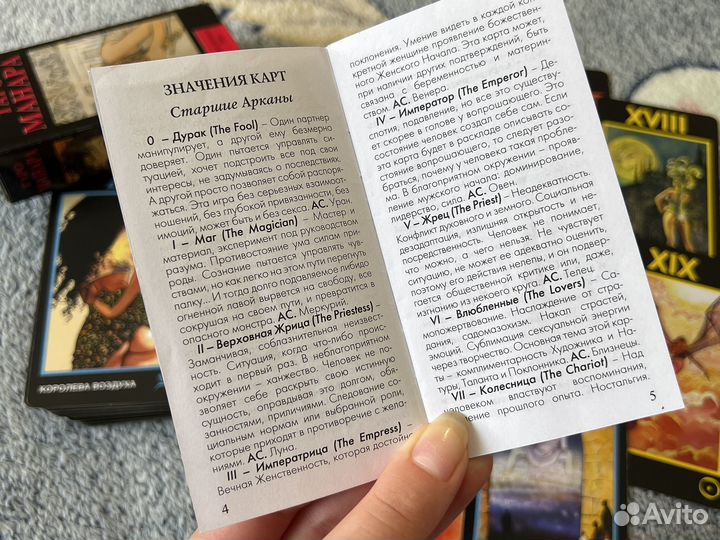 ТАРО
МАНАРА
КОРОЛЕВА ВОЗДУХА
ЗНАЧЕНИЯ КАРТ
Старшие Арканы
0 – Дурак (The Fool) – Один партнер
манипулирует, а другой ему безмерно
доверяет. Один пытается управлять си-
туацией, хочет подстроить все под свои
интересы, не задумываясь о последствиях.
А другой просто позволяет собой распоря-
жаться. Эта игра без серьезных взаимоот-
ношений, без глубокой привязанности, без
эмоций, может быть и без секса. АС. Уран.
I – Маг (The Magician) – Мастер и
материал, эксперимент под руководством
разума. Противостояние ума силам при-
роды. Сознание пытается управлять чув-
ствами, но как легко на этом пути перегнуть
палку... И тогда долго подавляемое либидо
огненной лавой вырвется на свободу, все
сокрушая на своем пути, и превратится в
опасного монстра. АС. Меркурий.
II – Верховная Жрица (The Priestess) –
Заманчивая, соблазнительная неизвест-
ность. Ситуация, когда что-либо проис-
ходит в первый раз. В неблагоприятном
окружении – ханжество. Человек не по-
зволяет себе раскрыть свою истинную
сущность, оправдывая это долгом, обя-
занностями, приличиями. Следование со-
циальным нормам или выбранной роли,
которые приходят в противоречие с жела-
ниями. АС. Луна.
III – Императрица (The Empress) –
Вечная Женственность, которая достойна
4
поклонения. Умение видеть в каждой кон-
кретной женщине проявление божествен-
ного Женского Начала. Эта карта может,
при наличии других подтверждений, быть
связана с беременностью и материн-
ством. АС. Венера.
IV – Император (The Emperor) – Де-
спотия, подавление, но все это существу-
ет скорее в голове у вопрошающего. Это
состояние человек создал себе сам. Если
эта карта будет в раскладе описывать со-
стояние вопрошающего, то следует разо-
браться, почему у человека такая пробле-
ма. В благоприятном окружении – прояв-
ление мужского начала: доминирование,
лидерство, сила. АС. Овен.
V – Жрец (The Priest) – Неадекватность.
Конфликт духовного и земного. Социальная
дезадаптация, излишняя открытость и не-
посредственность. Человек не понимает,
что можно, а чего нельзя. Не чувствует
ситуацию, не может ее адекватно оценить,
поэтому его действия нелепы, и он подвер-
гается общественной критике или, даже,
изгнанию из некоего круга. АС. Телец.
VI – Влюбленные (The Lovers) – Са-
мопожертвование. Наслаждение от стра-
дания, садомазохизм. Накал страстей,
эмоций. Сублимация сексуальной энергии
через творчество. Основная тема этой кар-
ты – комплиментарность Художника и На-
туры, Таланта и Поклонника. АС. Близнецы.
VII – Колесница (The Chariot) – Над
человеком властвуют воспоминания,
прошлого опыта. Ностальгия.
5
XVIII
XIX
Avito